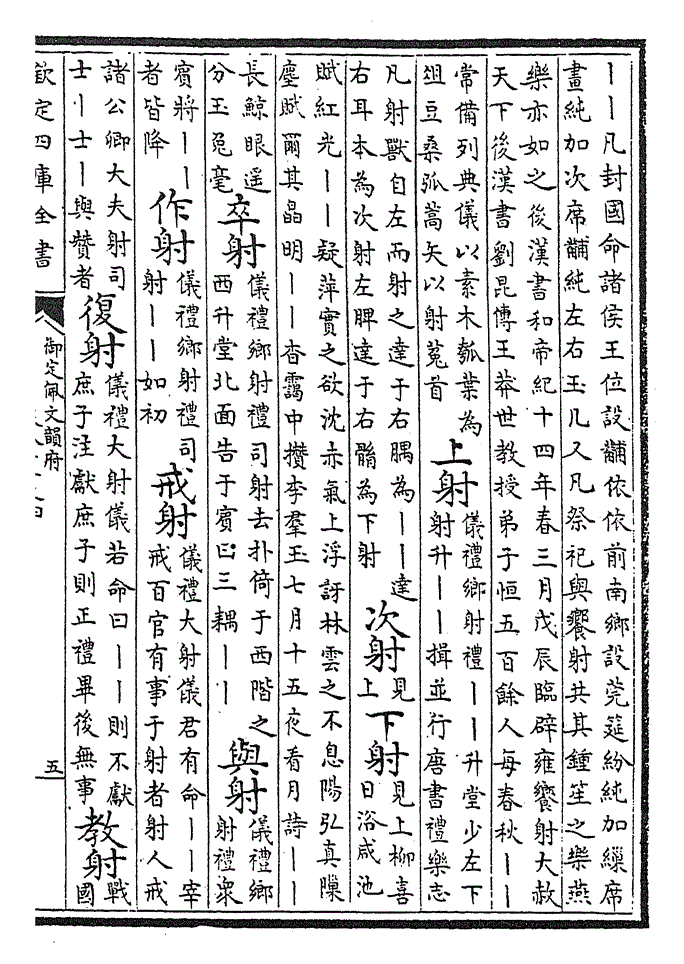 丨丨凡封國命諸侯王位設黼依依前南鄉設莞筵紛純加繅席
畫純加次席黼純左右玉几又凡祭祀與饗射共其鍾笙之樂燕
樂亦如之後漢書和帝紀十四年春三月戊辰臨辟雍饗射大赦
天下後漢書劉昆傳王莽世教授弟子恒五百餘人每春秋丨丨
常備列典儀以素木瓠葉為
俎豆桑弧蒿矢以射菟首
上射
儀禮鄉射禮丨丨升堂少左下
射升丨丨揖並行唐書禮樂志
凡射獸自左而射之達于右腢為丨丨達
右耳本為次射左脾達于右䯚為下射
次射
見
上
下射
見上柳喜
日浴咸池
賦紅光丨丨疑萍實之欲沈赤氣上浮訝林雲之不息陽弘真隟
塵賦爾其晶明丨丨杳靄中攢李羣玉七月十五夜看月詩丨丨
長鯨眼遥
分玉兔毫
卒射
儀禮鄉射禮司射去扑倚于西階之
西升堂北面告于賓曰三耦丨丨
與射
儀禮鄉
射禮衆
賓將丨丨
者皆降
作射
儀禮鄉射禮司
射丨丨如初
戒射
儀禮大射儀君有命丨丨宰
戒百官有事于射者射人戒
諸公卿大夫射司
士丨士丨與贊者
復射
儀禮大射儀若命曰丨丨則不獻
庶子注獻庶子則正禮畢後無事
教射
戰
國
欽定四庫全書
御定佩文韻府
五